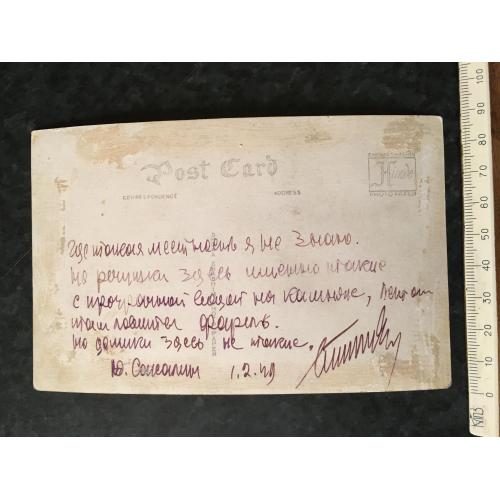 Post Card
CORRESPONDENCE
ADDRESS
Где такая местность я не знаю.
Но речушки здесь именно такие
с прозрачной водой на камнях,
там ловится форель.
но домики здесь не такие.
Ю. Сахалин 1.2.49
10 20 30 40 50 60 70 80 90 100